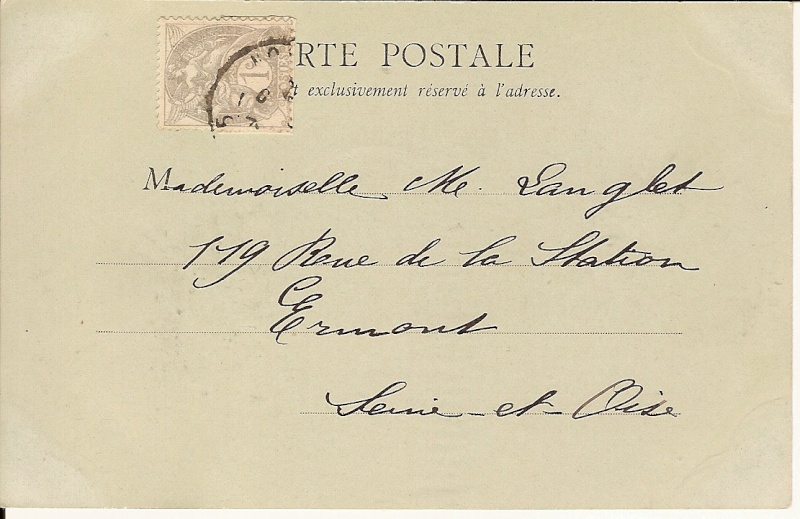 RTE POSTALE
t exclusivement réservé à l'adresse.
1
Mademoiselle M. Langlet
119 Rue de la Station
Ermont
Seine-et-Oise